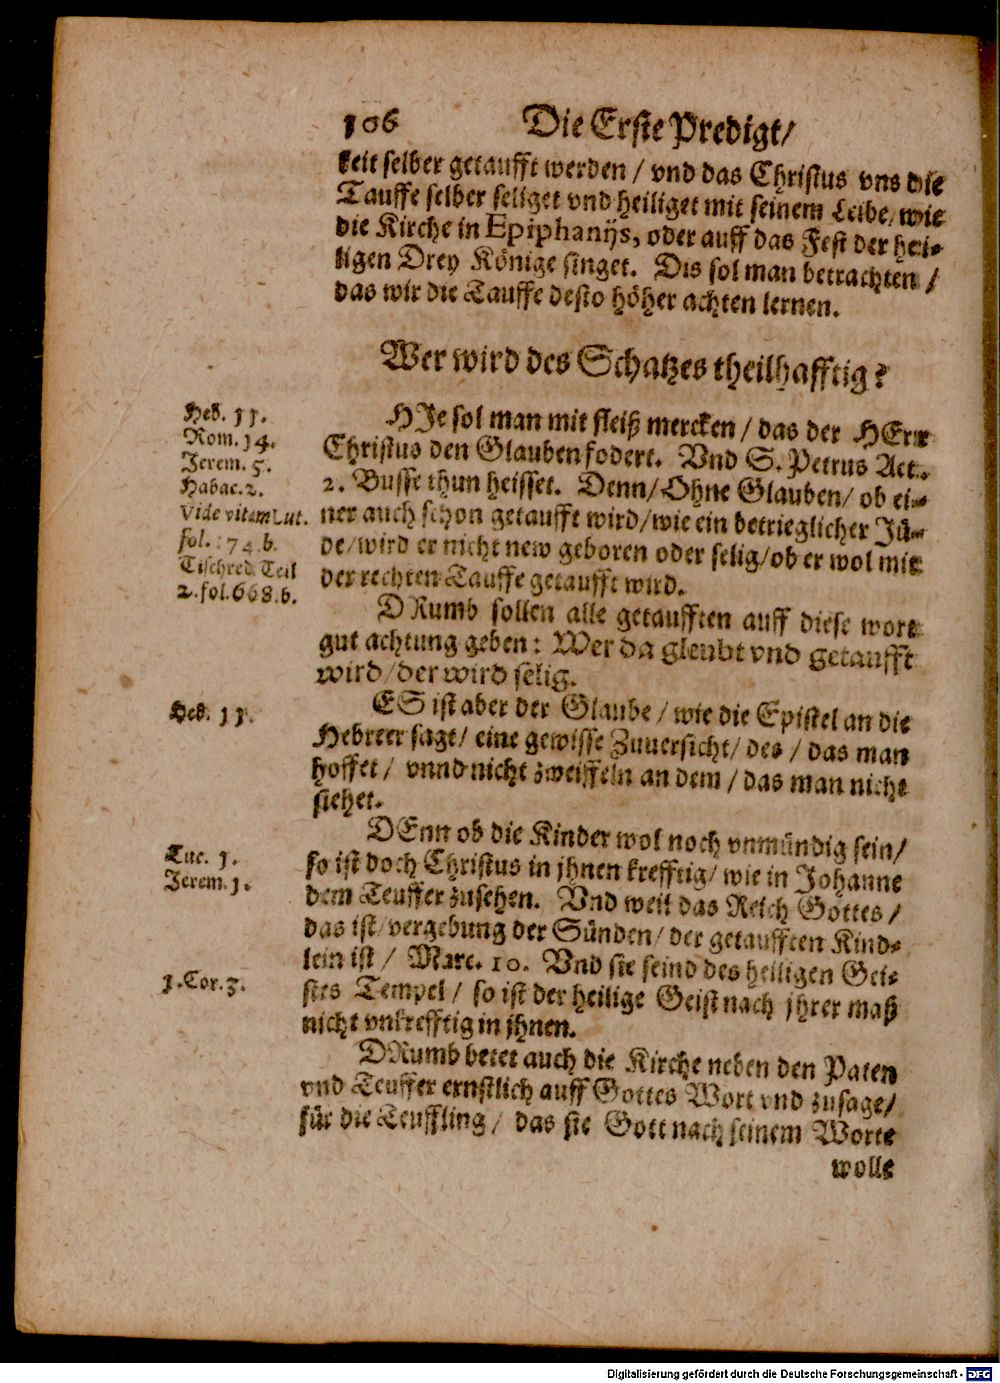 106 Die Erste Predigt/
keit selber getaufft werden / vnd das Christus vns die
Tauffe selber seliget vnd heiliget mit seinem Leibe/ wie
die Kirche in Epiphanijs, oder auff das Fest der hei-
ligen Drey Könige singet. Dis sol man betrachten /
das wir die Tauffe desto höher achten lernen.
Wer wird des Schatzes theilhafftig?
Heb. 11.
Rom. 14.
Jerem. 5.
Habac. 2.
Vide vitam Lut.
fol. 174. b.
Tischred. Teil
2. fol. 668. b.
HJe sol man mit fleiß mercken / das der HErr
Christus den Glauben fodert. Vnd S. Petrus Act.
2. Busse thun heisset. Denn/ Ohne Glauben/ ob ei-
ner auch schon getaufft wird/ wie ein betrieglicher Jü-
de/ wird er nicht new geboren oder selig/ ob er wol mit
der rechten Tauffe getaufft wird.
DRumb sollen alle getaufften auff diese wort
gut achtung geben: Wer da gleubt vnd getaufft
wird/ der wird selig.
Heb. 11.
ES ist aber der Glaube / wie die Epistel an die
Hebreer sagt/ eine gewisse Zuuersicht/ des / das man
hoffet / vnnd nicht zweiffeln an dem / das man nicht
siehet.
Luc. 1.
Jerem. 1.
DEnn ob die Kinder wol noch vnmündig sein/
so ist doch Christus in jhnen krefftig/ wie in Johanne
dem Teuffer zusehen. Vnd weil das Reich Gottes /
das ist/ vergebung der Sünden/ der getaufften Kind-
lein ist / Marc. 10. Vnd sie seind des heiligen Gei-
1. Cor. 3.
stes Tempel / so ist der heilige Geist nach jhrer maß
nicht vnkrefftig in jhnen.
DRumb betet auch die Kirche neben den Paten
vnd Teuffer ernstlich auff Gottes Wort vnd zusage/
für die Teuffling / das sie Gott nach seinem Worte
wolle
Digitalisierung gefördert durch die Deutsche Forschungsgemeinschaft - DFG